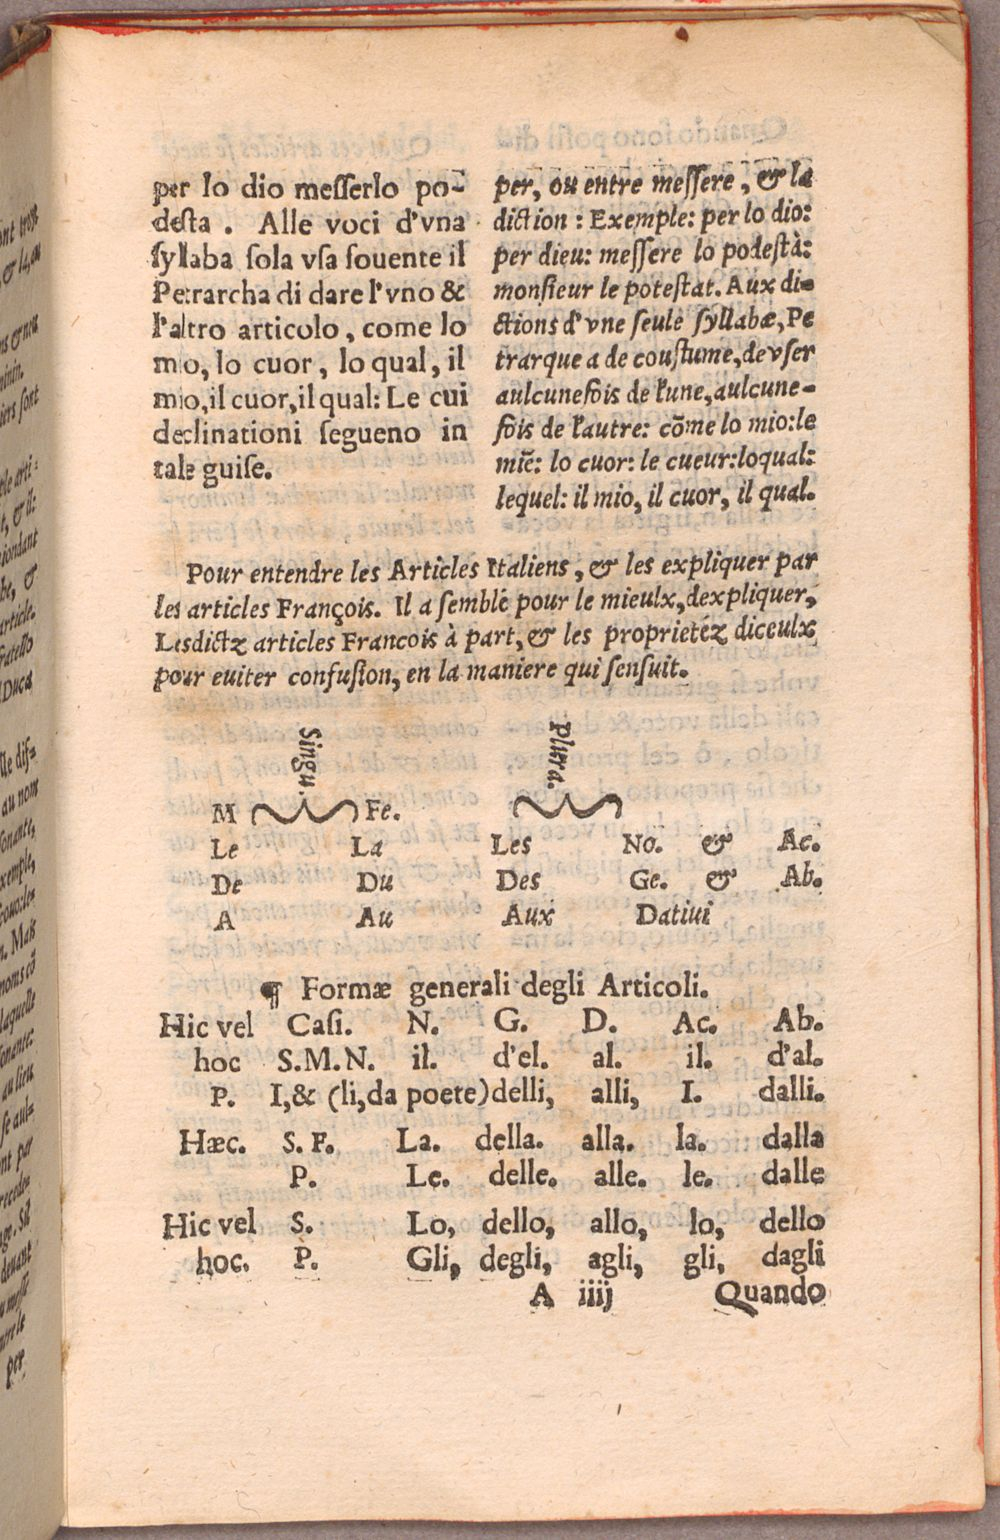 per lo dio meſſerlo po-
deſta . Alle voci d'vna
ſyllaba ſola vſa ſouente il
Petrarcha di dare l'vno &
l'altro articolo , come lo
mio, lo cuor , lo qual , il
mio, il cuor, il qual: Le cui
declinationi ſegueno in
tale guiſe.
per, ou entre meſſere , & la
diction : Exemple: per lo dio:
per dieu: meſſere lo podeſtà:
monſieur le poteſtat. Aux di-
ctions d'vne ſeule ſyllabæ, Pe
trarque a de couſtume, de vſer
aulcunefois de l'une, aulcune-
fois de l'autre: cõme lo mio: le
miẽ: lo cuor: le cueur: loqual:
lequel: il mio, il cuor, il qual.
Pour entendre les Articles Italiens , & les expliquer par
les articles François. Il a ſemblé pour le mieulx, dexpliquer,
Leſdictz articles Francois à part, & les proprietéz diceulx
pour euiter confuſion, en la maniere qui ſenſuit.
Singu.
Plura.
M Fe.
Le La Les No. & Ac.
De Du Des Ge. & Ab.
A Au Aux Datiui
¶ Formæ generali degli Articoli.
Hic vel Caſi. N. G. D. Ac. Ab.
hoc S. M. N. il. d'el. al. il. d'al.
P. I, & (li, da poete) delli, alli, I. dalli.
Hæc. S. F. La. della. alla. la. dalla
P. Le. delle. alle. le. dalle
Hic vel S. Lo, dello, allo, lo, dello
hoc. P. Gli, degli, agli, gli, dagli
A iiij Quando